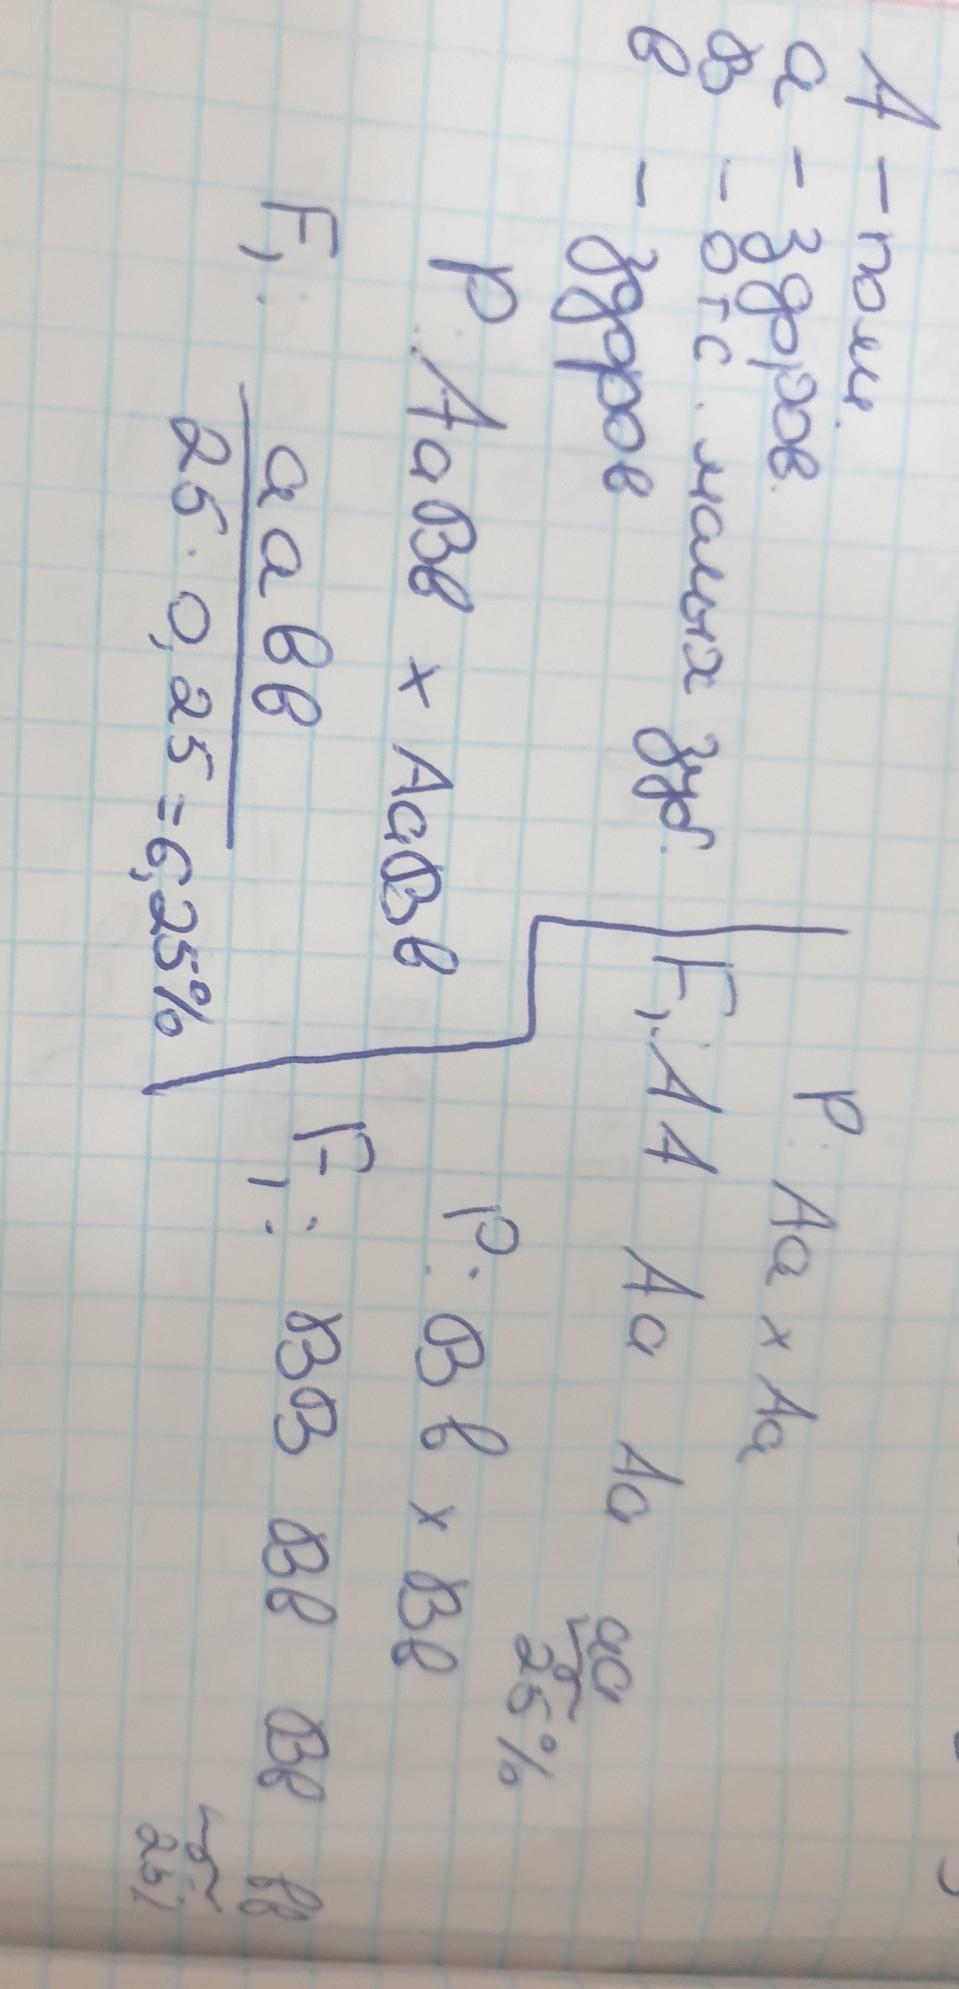 А - пол.
а - здоров.
В - отс. малых зуб.
в - здоров
P: АаВв х АаВв
F₁: аавв
25 · 0,25 = 6,25%
P: Аа х Аа
F₁: АА Аа Аа аа
25%
P: Вв х Вв
F₁: ВВ Вв Вв вв
25%